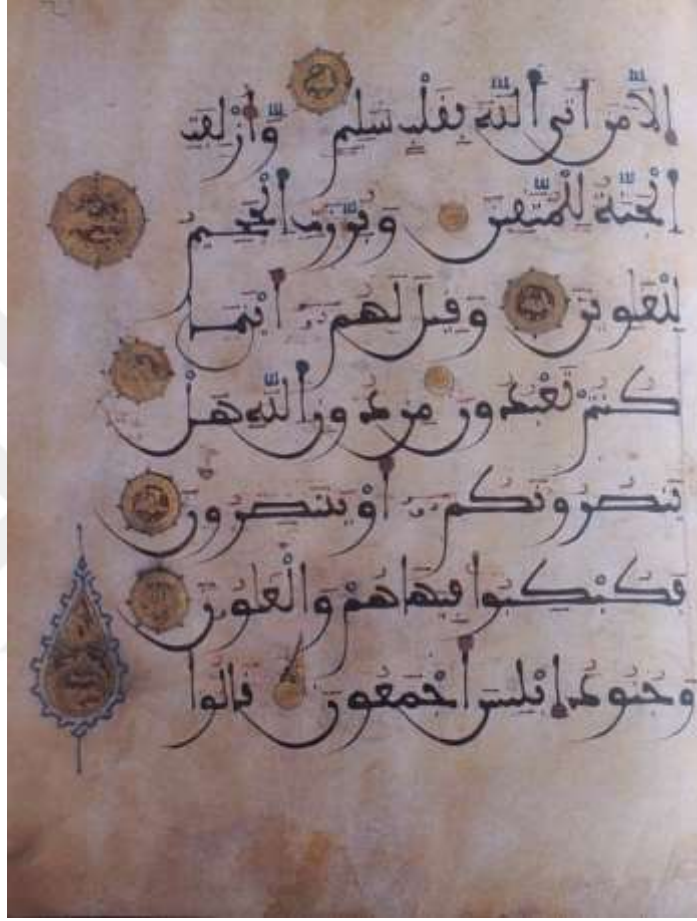 إِلَّا مَنْ أَتَى اللَّهَ بِقَلْبٍ سَلِيمٍ وَأُزْلِفَتِ
الْجَنَّةُ لِلْمُتَّقِينَ وَبُرِّزَتِ الْجَحِيمُ
لِلْغَاوِينَ وَقِيلَ لَهُمْ أَيْنَمَا
كُنتُمْ تَعْبُدُونَ مِن دُونِ اللَّهِ هَلْ
يَنصُرُونَكُمْ أَوْ يَنتَصِرُونَ
فَكُبْكِبُوا فِيهَا هُمْ وَالْغَاوُونَ
وَجُنُودُ إِبْلِيسَ أَجْمَعُونَ قَالُوا